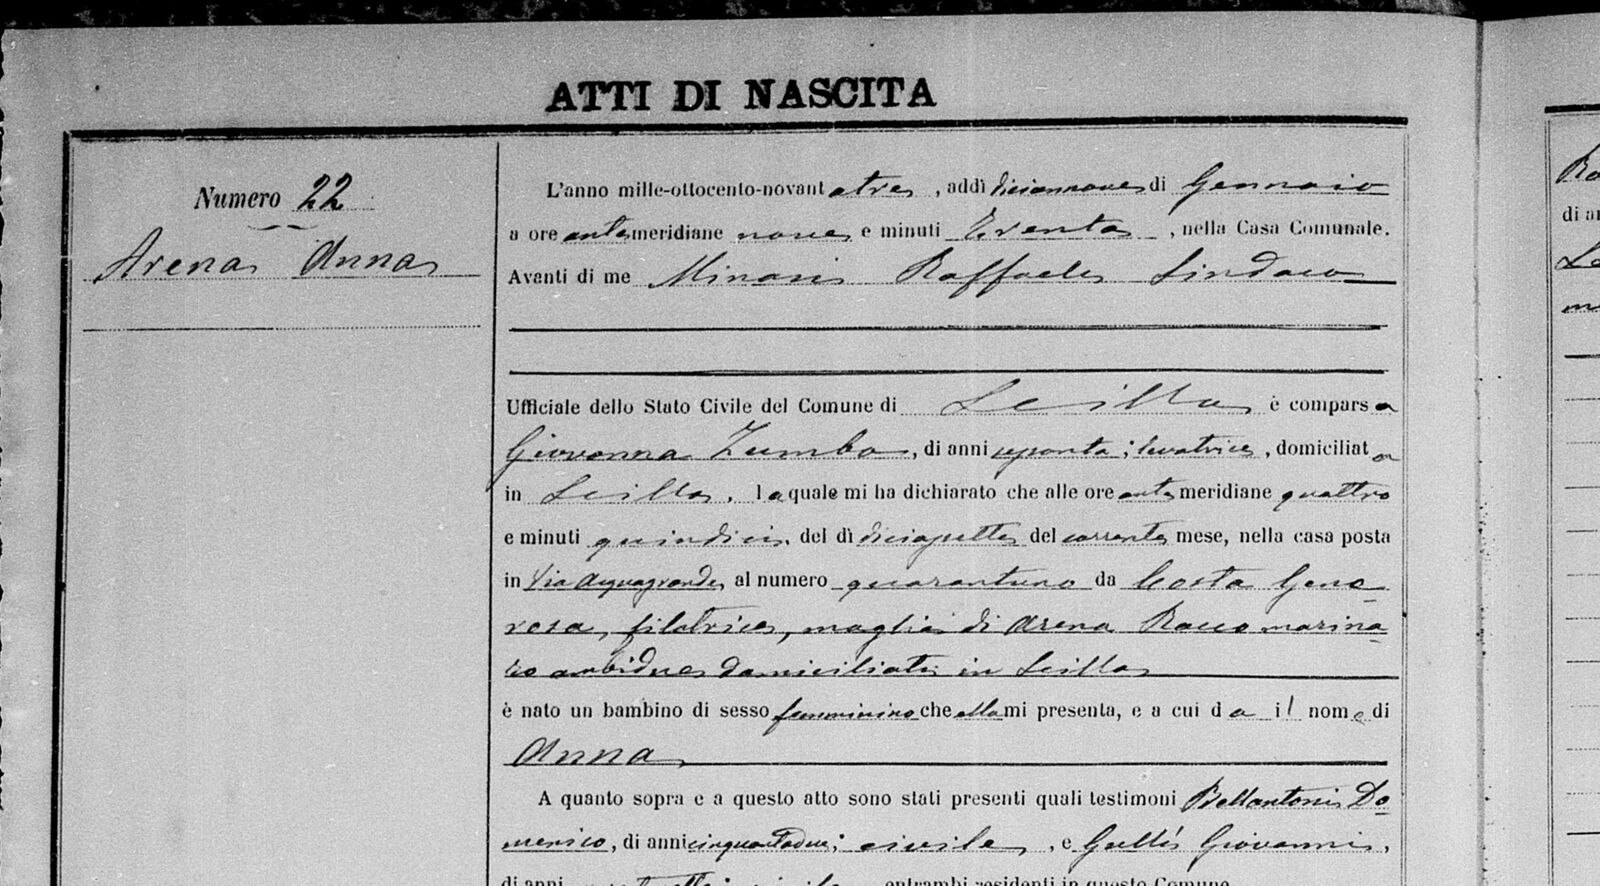 ATTI DI NASCITA
Numero 22
Arena Anna
L'anno mille-ottocento-novantatre, addì diciannove di Gennaio
a ore antemeridiane nove, e minuti trenta, nella Casa Comunale.
Avanti di me Minasi Raffaele Sindaco
Ufficiale dello Stato Civile del Comune di Scilla è comparsa
Giovanna Zumbo, di anni, levatrice, domiciliata
in Scilla, la quale mi ha dichiarato che alle ore antemeridiane quattro
e minuti quindici, del dì diciasette del corrente mese, nella casa posta
in Via Acquagrande, al numero quarantuno da Costa Gene
rosa, filatrice, moglie di Arena Rocco marina
ro ambidue domiciliati in Scilla
è nato un bambino di sesso femminino che ella mi presenta, e a cui da il nome di
Anna
A quanto sopra e a questo atto sono stati presenti quali testimoni Bellantoni Do
menico, di anni cinquantadue, civile, e Gullì Giovanni,
di anni civile, entrambi residenti in questo Comune
di an